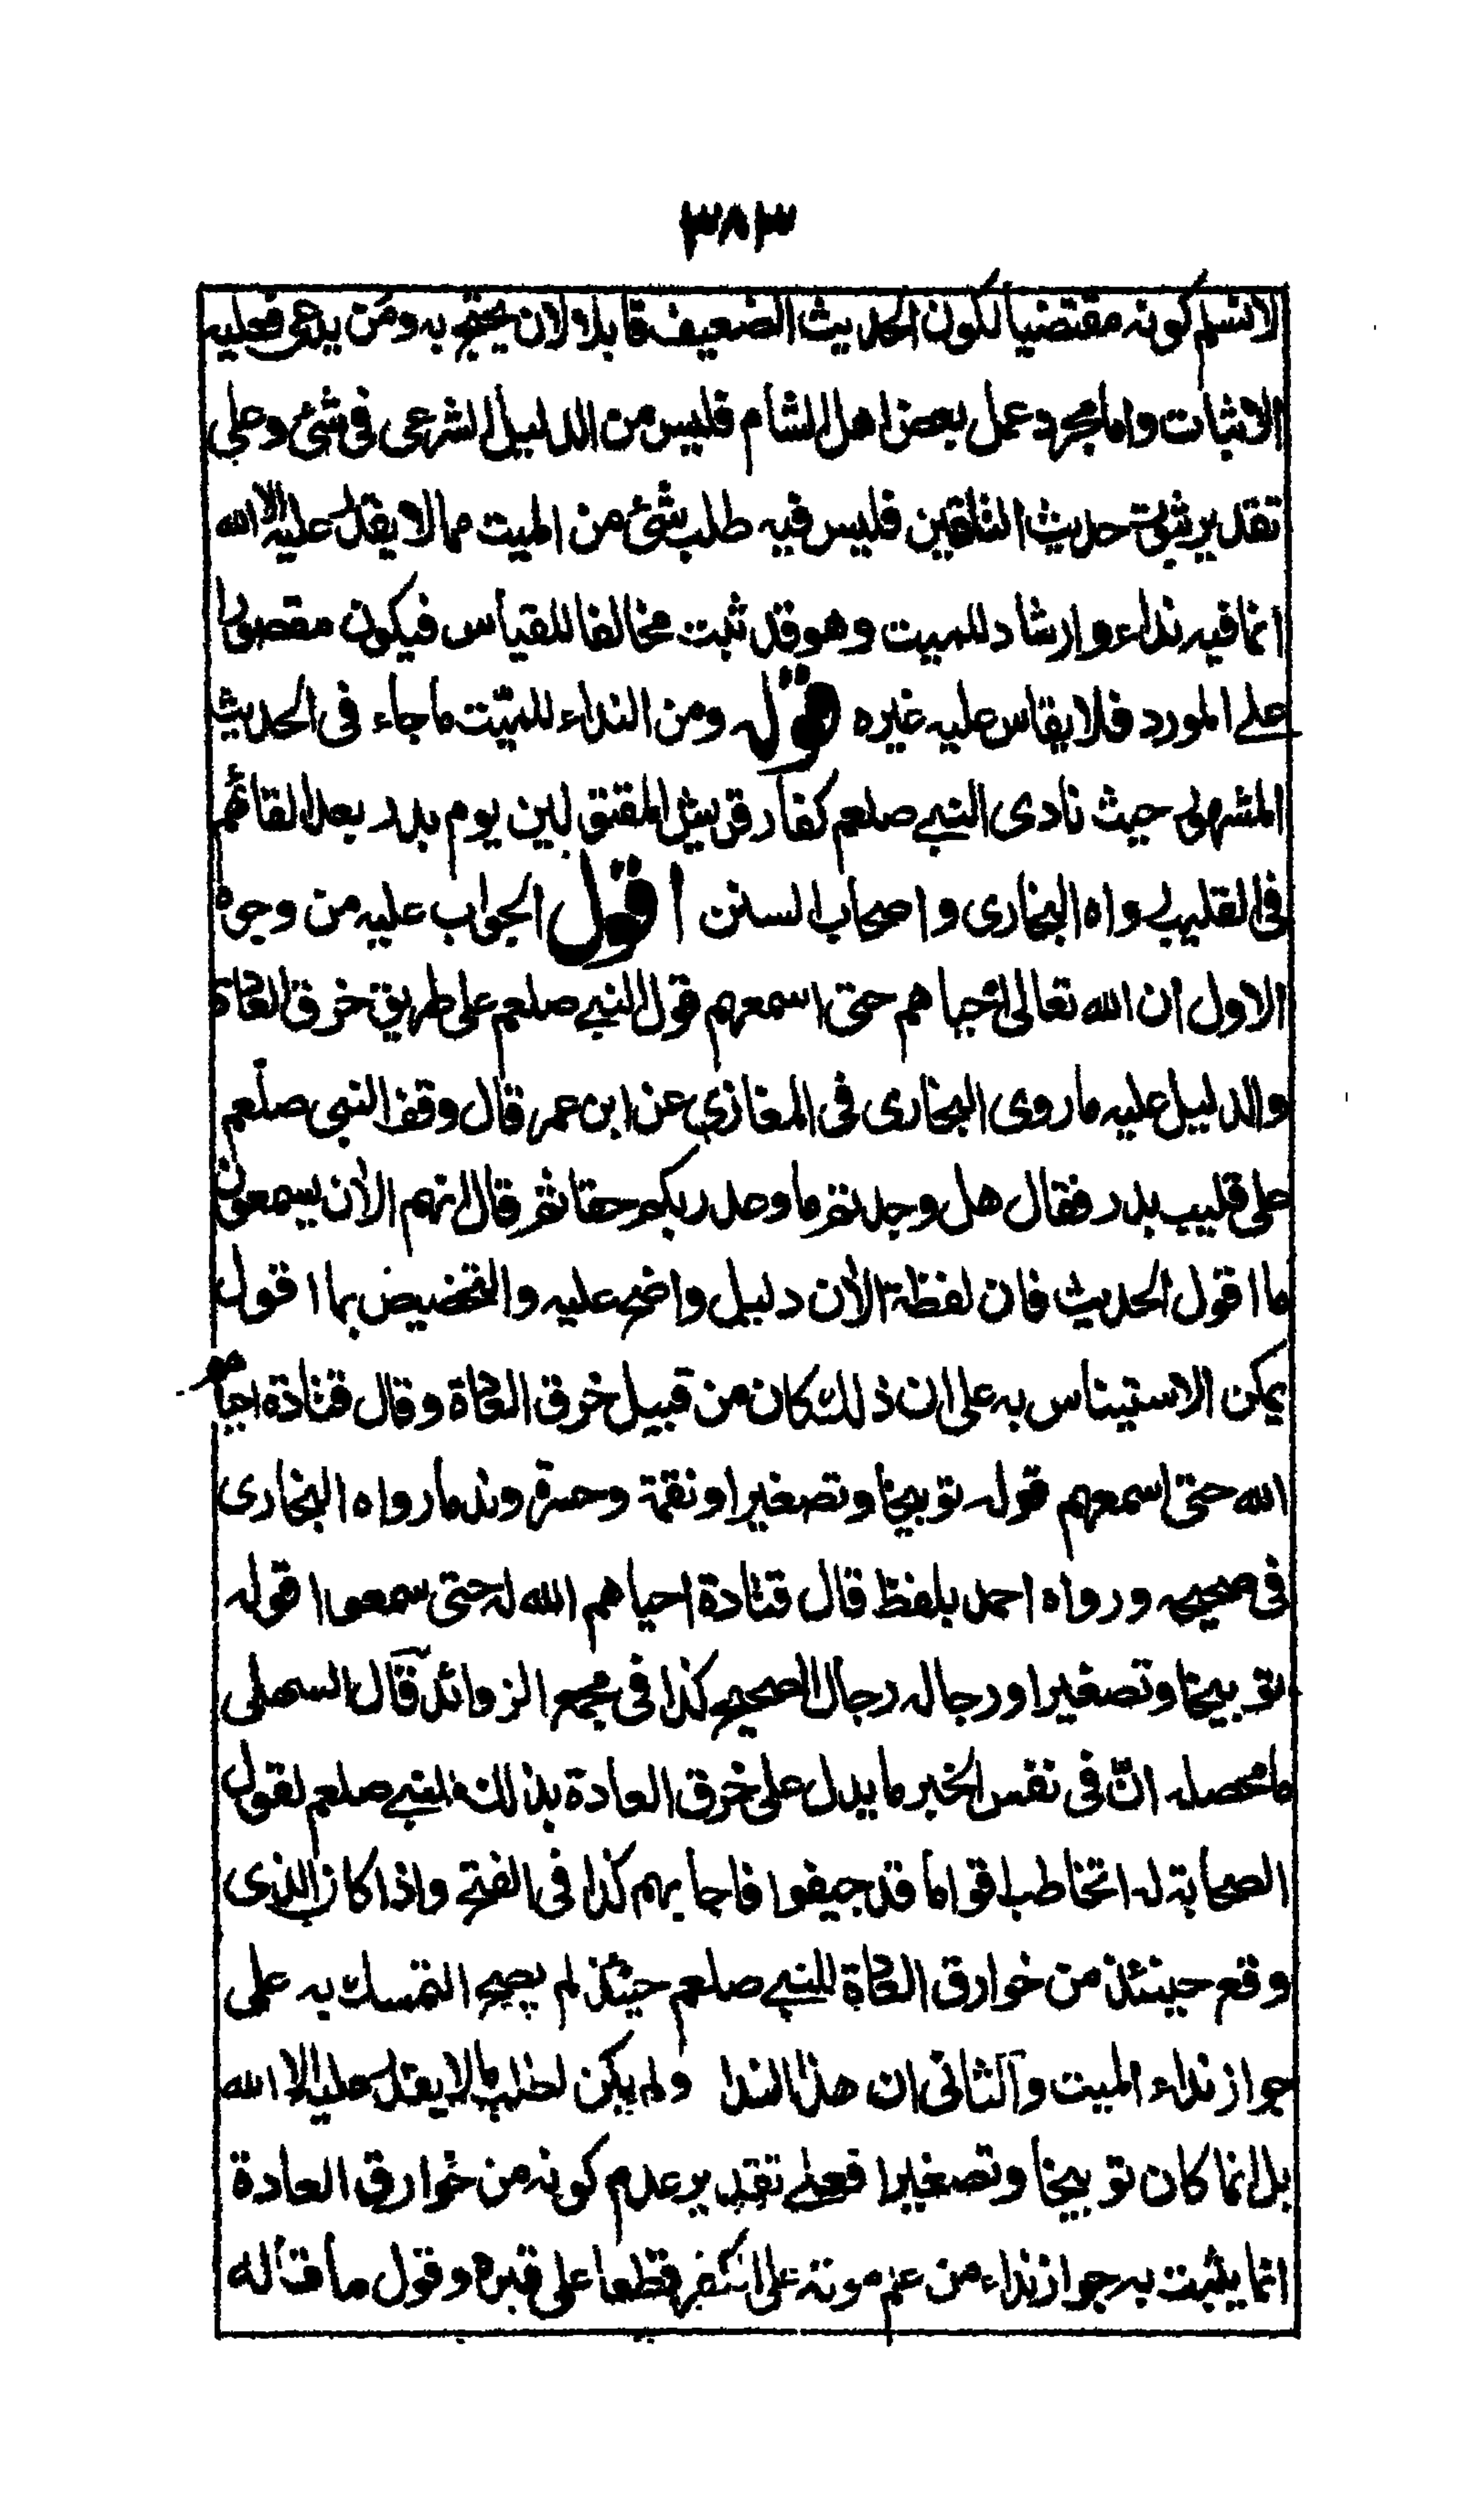 ٣٨٣
لا نسلم كونه مقتضيا لكون الحديث الضعيف قابلا لان يحتج به ومن يدعي فعليه
الاثبات واما مجرد عمل بعض اهل الشام فليس من الدليل الشرعى فى شئ وعلى
تقدير ثبوت حديث التلقين فليس فيه طلب شئ من الميت مما لا يقدر عليه الا الله
انما فيه نداء وارشاد للميت وهو قد ثبت مخالفا للقياس فيكون مقصورا
على المورد فلا يقاس عليه غيره قوله ومن النداء للميت ما جاء فى الحديث
المشهور حيث نادى النبي صلعم كفار قريش المقتولين يوم بدر بعد القائهم
فى القليب رواه البخارى واصحاب السنن اقول الجواب عليه من وجوه
الاول ان الله تعالى احياهم حتى اسمعهم قول النبي صلعم على طريق خرق العادة
والدليل عليه ما روى البخارى فى المغازي عن ابن عمر قال وقف النبى صلعم
على قليب بدر فقال هل وجدتم ما وعد ربكم حقا ثم قال انهم الآن يسمعون
ما اقول الحديث فان لفظة الآن دليل واضح عليه والتخصيص بما اقول
يمكن الاستيناس به على ان ذلك كان من قبيل خرق العادة وقال قتادة احياهم
الله حتى اسمعهم قوله توبيخا وتصغيرا ونقمة وحسرة وندما رواه البخارى
فى صحيحه ورواه احمد بلفظ قال قتادة احياهم الله له حتى سمعوا قوله
توبيخا وتصغيرا ورجاله رجال الصحيح كذا فى مجمع الزوائد قال السهيلى
ما محصله انّ فى نفس الخبر ما يدل على خرق العادة بذلك للنبي صلعم لقول
الصحابة له اتخاطب اقواما قد جيفوا فاجابهم كذا فى الفتح واذا كان الذى
وقع حينئذ من خوارق العادة للنبي صلعم حينئذ لم يصح التمسك به على
جواز نداء الميت والثانى ان هذا النداء ولم يكن لطلب ما لا يقدر عليه الا الله
بل انما كان توبيخا وتصغيرا فعلى تقدير عدم كونه من خوارق العادة
انما يثبت به جواز نداء من علم موته على الكفر قطعا على قبره وقول ما قاله